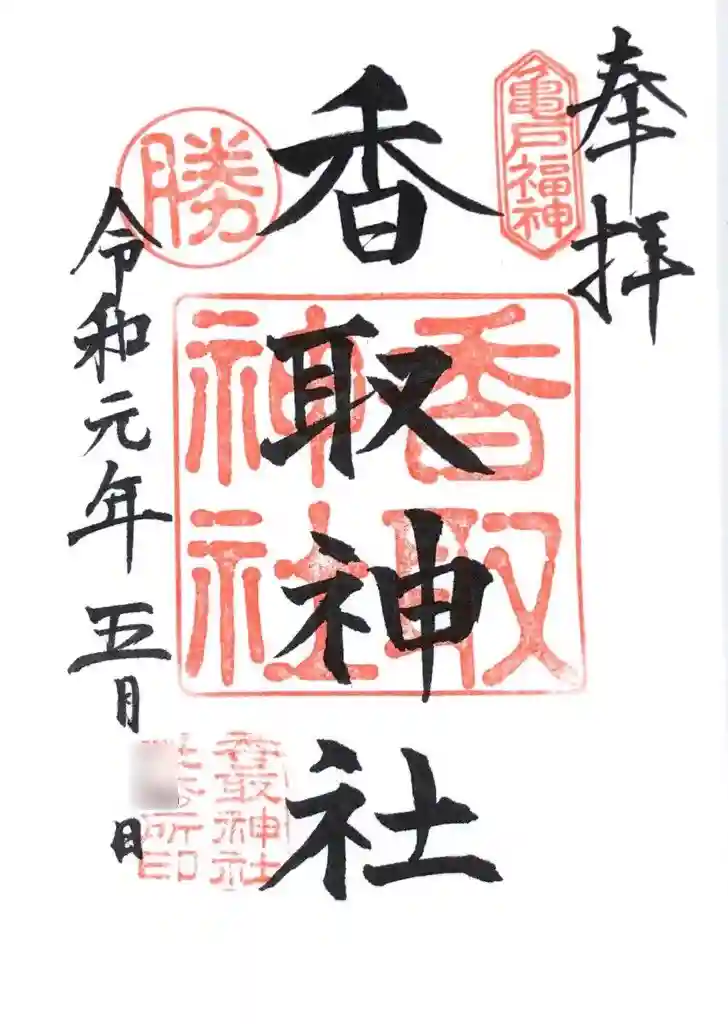 奉拝
亀戸福神
香取神社
香取
神社
勝
令和元年五月 日
香取神社
所印